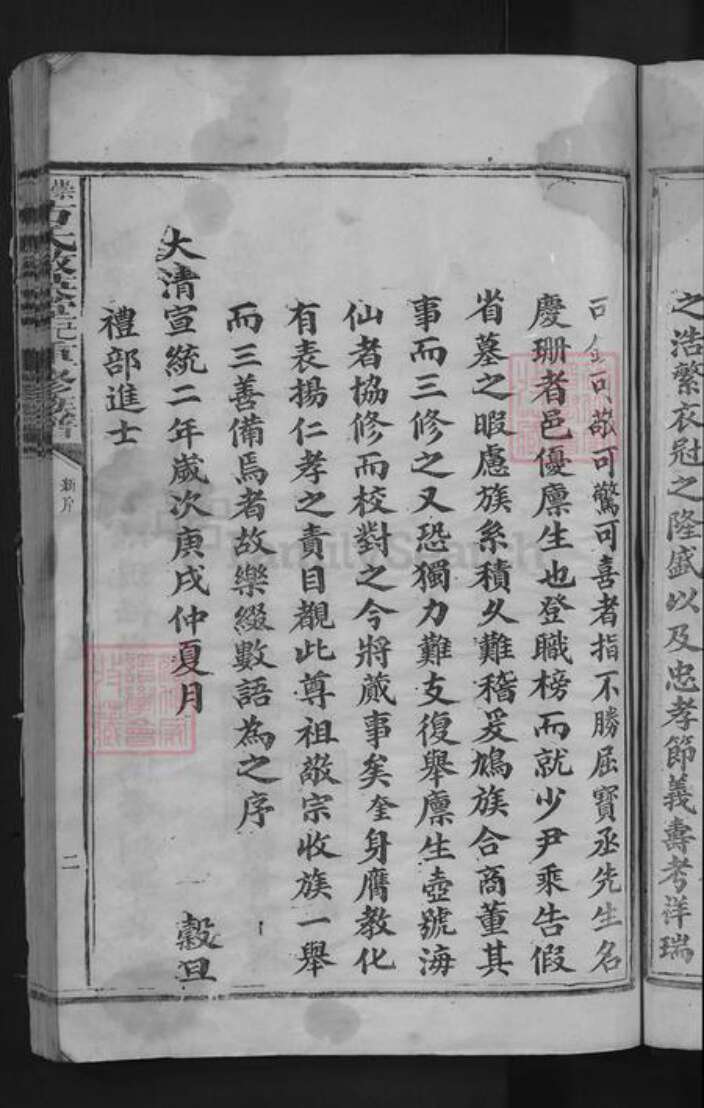 之浩繁衣冠之隆盛以及忠孝節義壽考祥瑞
可敬可驚可喜者指不勝屈寶丞先生名
慶珊者邑優廩生也登職榜而就少尹乘告假
省墓之暇慮族系積久難稽爰鳩族合商董其
事而三修之又恐獨力難支復舉廩生壺號海
仙者協修而校對之今將蕆事矣奎身膺教化
有表揚仁孝之責目覩此尊祖敬宗收族一舉
而三善備焉者故樂綴數語為之序
大清宣統二年歲次庚戌仲夏月 穀旦
禮部進士
二
FamilySearch